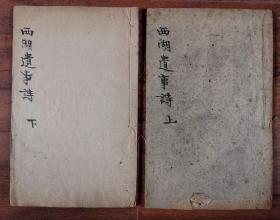 西湖遺事詩 上
西湖遺事詩 下